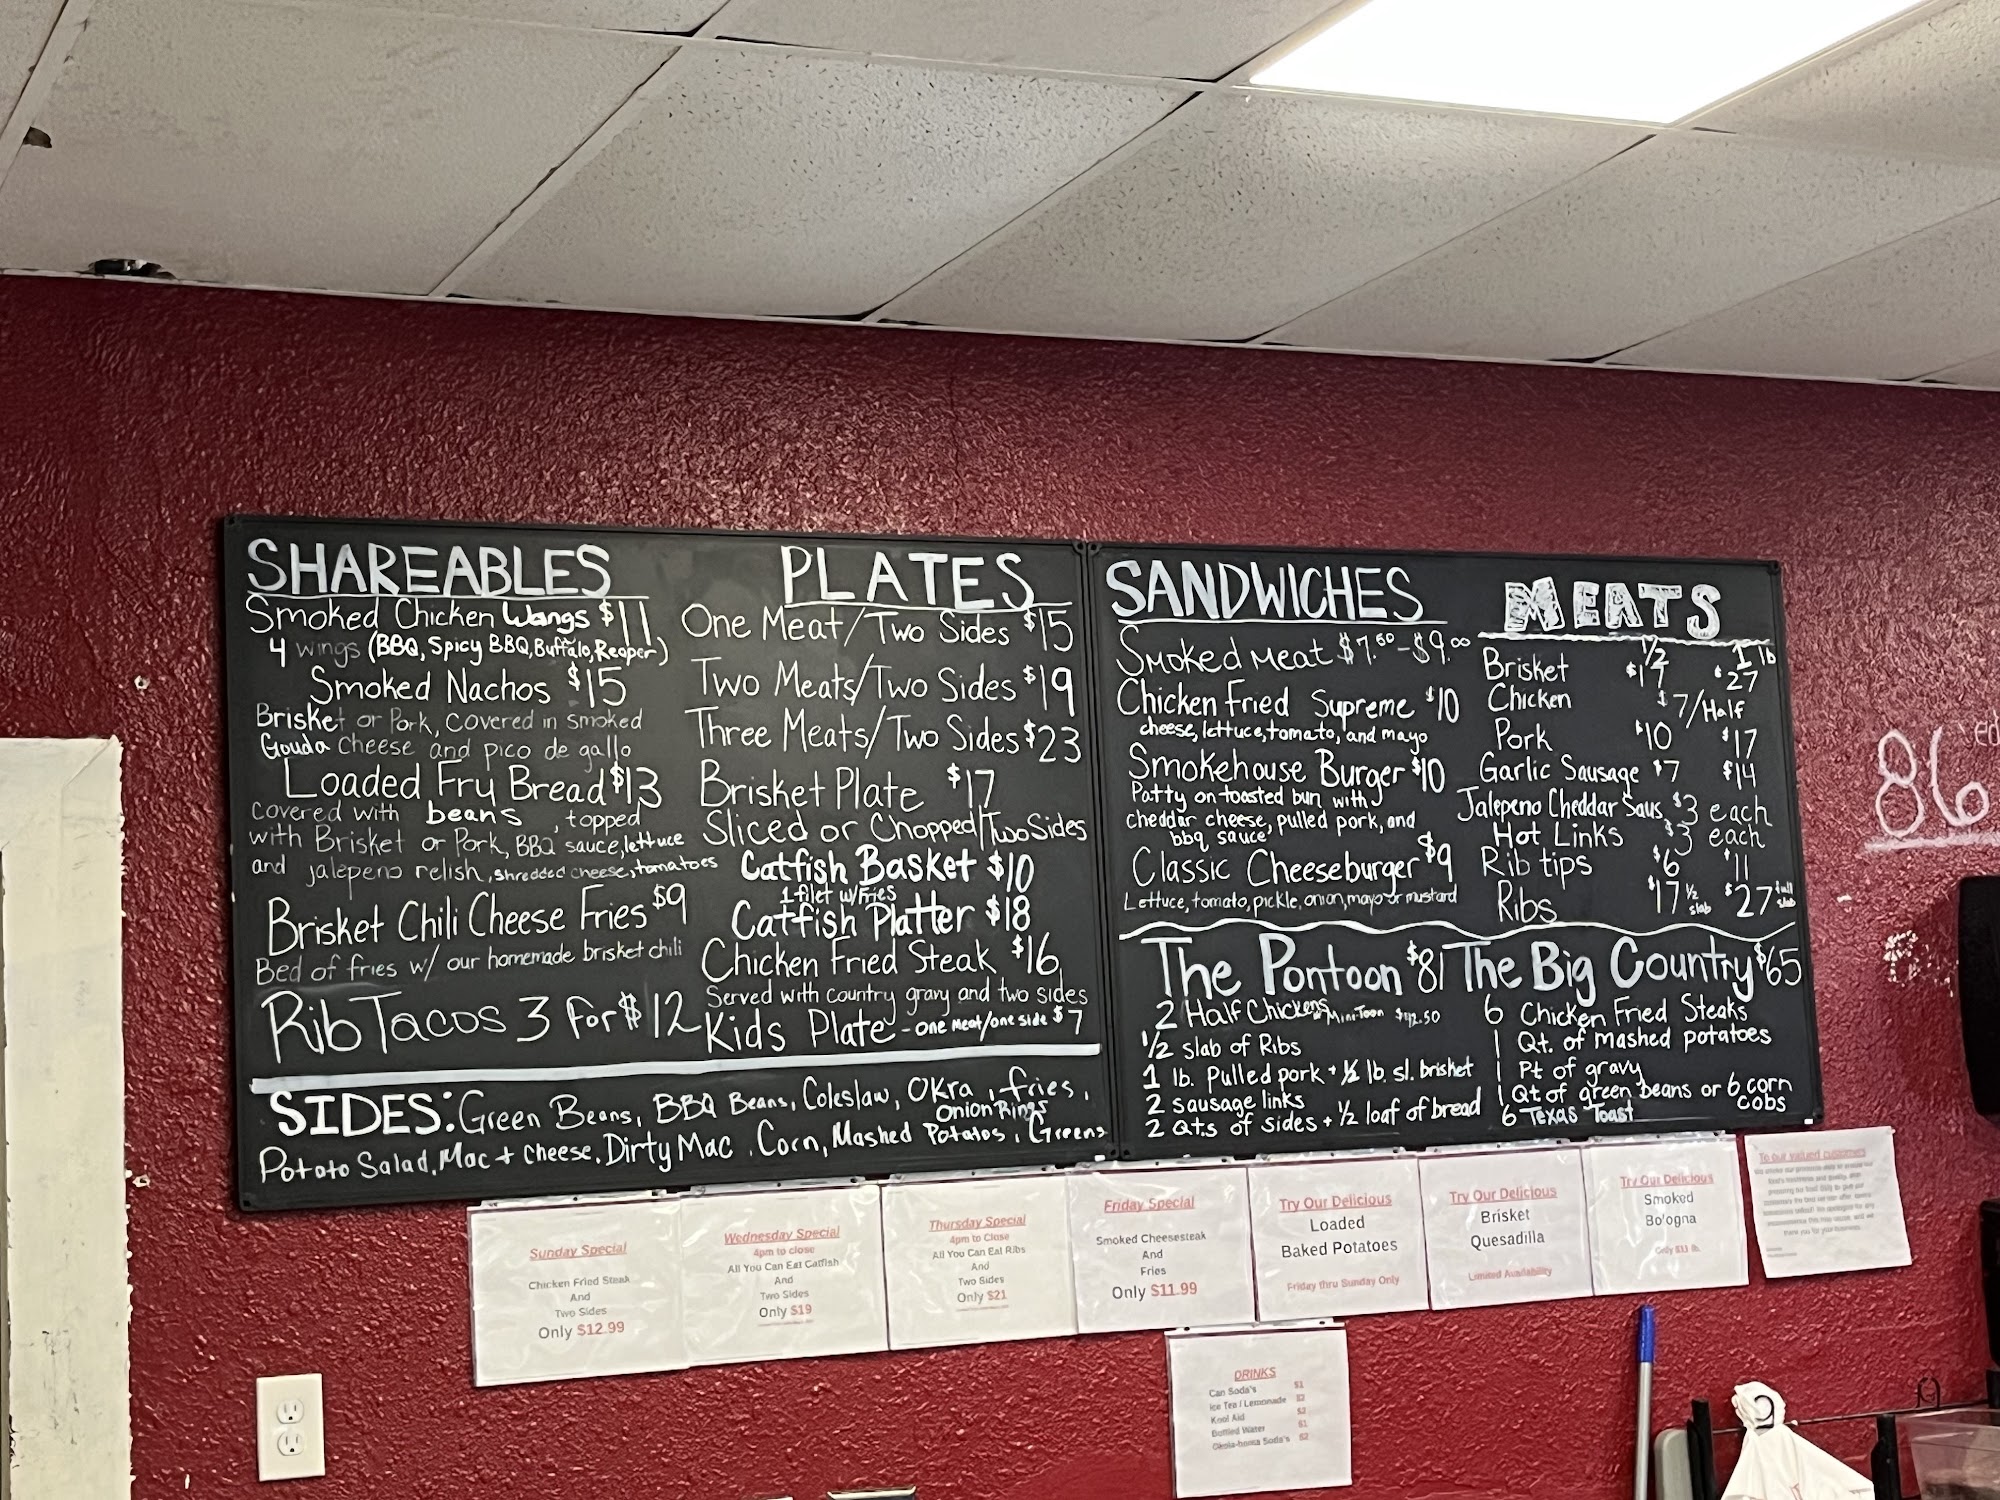 SHAREABLES
Smoked Chicken Wangs $11
4 wings (BBQ, Spicy BBQ, Buffalo, Reaper)
Smoked Nachos $15
Brisket or Pork, covered in smoked
Gouda cheese and pico de gallo
Loaded Fry Bread $13
covered with beans, topped
with Brisket or Pork, BBQ sauce, lettuce
and jalepeno relish, shredded cheese, tomatoes
Brisket Chili Cheese Fries $9
Bed of fries w/ our homemade brisket chili
Rib Tacos 3 for $12
PLATES
One Meat/Two Sides $15
Two Meats/Two Sides $19
Three Meats/Two Sides $23
Brisket Plate $17
Sliced or Chopped/Two Sides
Catfish Basket $10
1 filet w/Fries
Catfish Platter $18
Chicken Fried Steak $16
Served with country gravy and two sides
Kids Plate - one meat/one side $7
SIDES: Green Beans, BBQ Beans, Coleslaw, OKra, fries,
Onion Rings
Potato Salad, Mac + Cheese, Dirty Mac, Corn, Mashed Potatos, Greens
SANDWICHES
Smoked Meat $7.50-$9.00
Chicken Fried Supreme $10
cheese, lettuce, tomato, and mayo
Smokehouse Burger $10
Patty on toasted bun with
cheddar cheese, pulled pork, and
bbq sauce
Classic Cheeseburger $9
Lettuce, tomato, pickle, onion, mayo or mustard
MEATS
1/2 1 lb
Brisket $17 $27
Chicken $7/Half
Pork $10 $17
Garlic Sausage $7 $14
Jalepeno Cheddar Saus. $3 each
Hot Links $3 each
Rib tips $6 $11
Ribs $17 1/2 slab $27 full slab
The Pontoon $81
2 Half Chickens
Mini Toon $42.50
1/2 slab of Ribs
1 lb. Pulled pork + 1/2 lb. sl. brisket
2 sausage links
2 Qts of sides + 1/2 loaf of bread
The Big Country $65
6 Chicken Fried Steaks
1 Qt. of mashed potatoes
1 Pt of gravy
1 Qt of green beans or 6 corn cobs
6 Texas Toast
86
Sunday Special
Chicken Fried Steak
And
Two Sides
Only $12.99
Wednesday Special
4pm to close
All You Can Eat Catfish
And
Two Sides
Only $19
Thursday Special
4pm to Close
All You Can Eat Ribs
And
Two Sides
Only $21
Friday Special
Smoked Cheesesteak
And
Fries
Only $11.99
Try Our Delicious
Loaded
Baked Potatoes
Friday thru Sunday Only
Try Our Delicious
Brisket
Quesadilla
Limited Availability
Try Our Delicious
Smoked
Bologna
Only $11 lb.
To our valued customers
DRINKS
Can Soda's $1
Ice Tea / Lemonade
Kool Aid
Bottled Water $1
Okola-homa Soda's $2